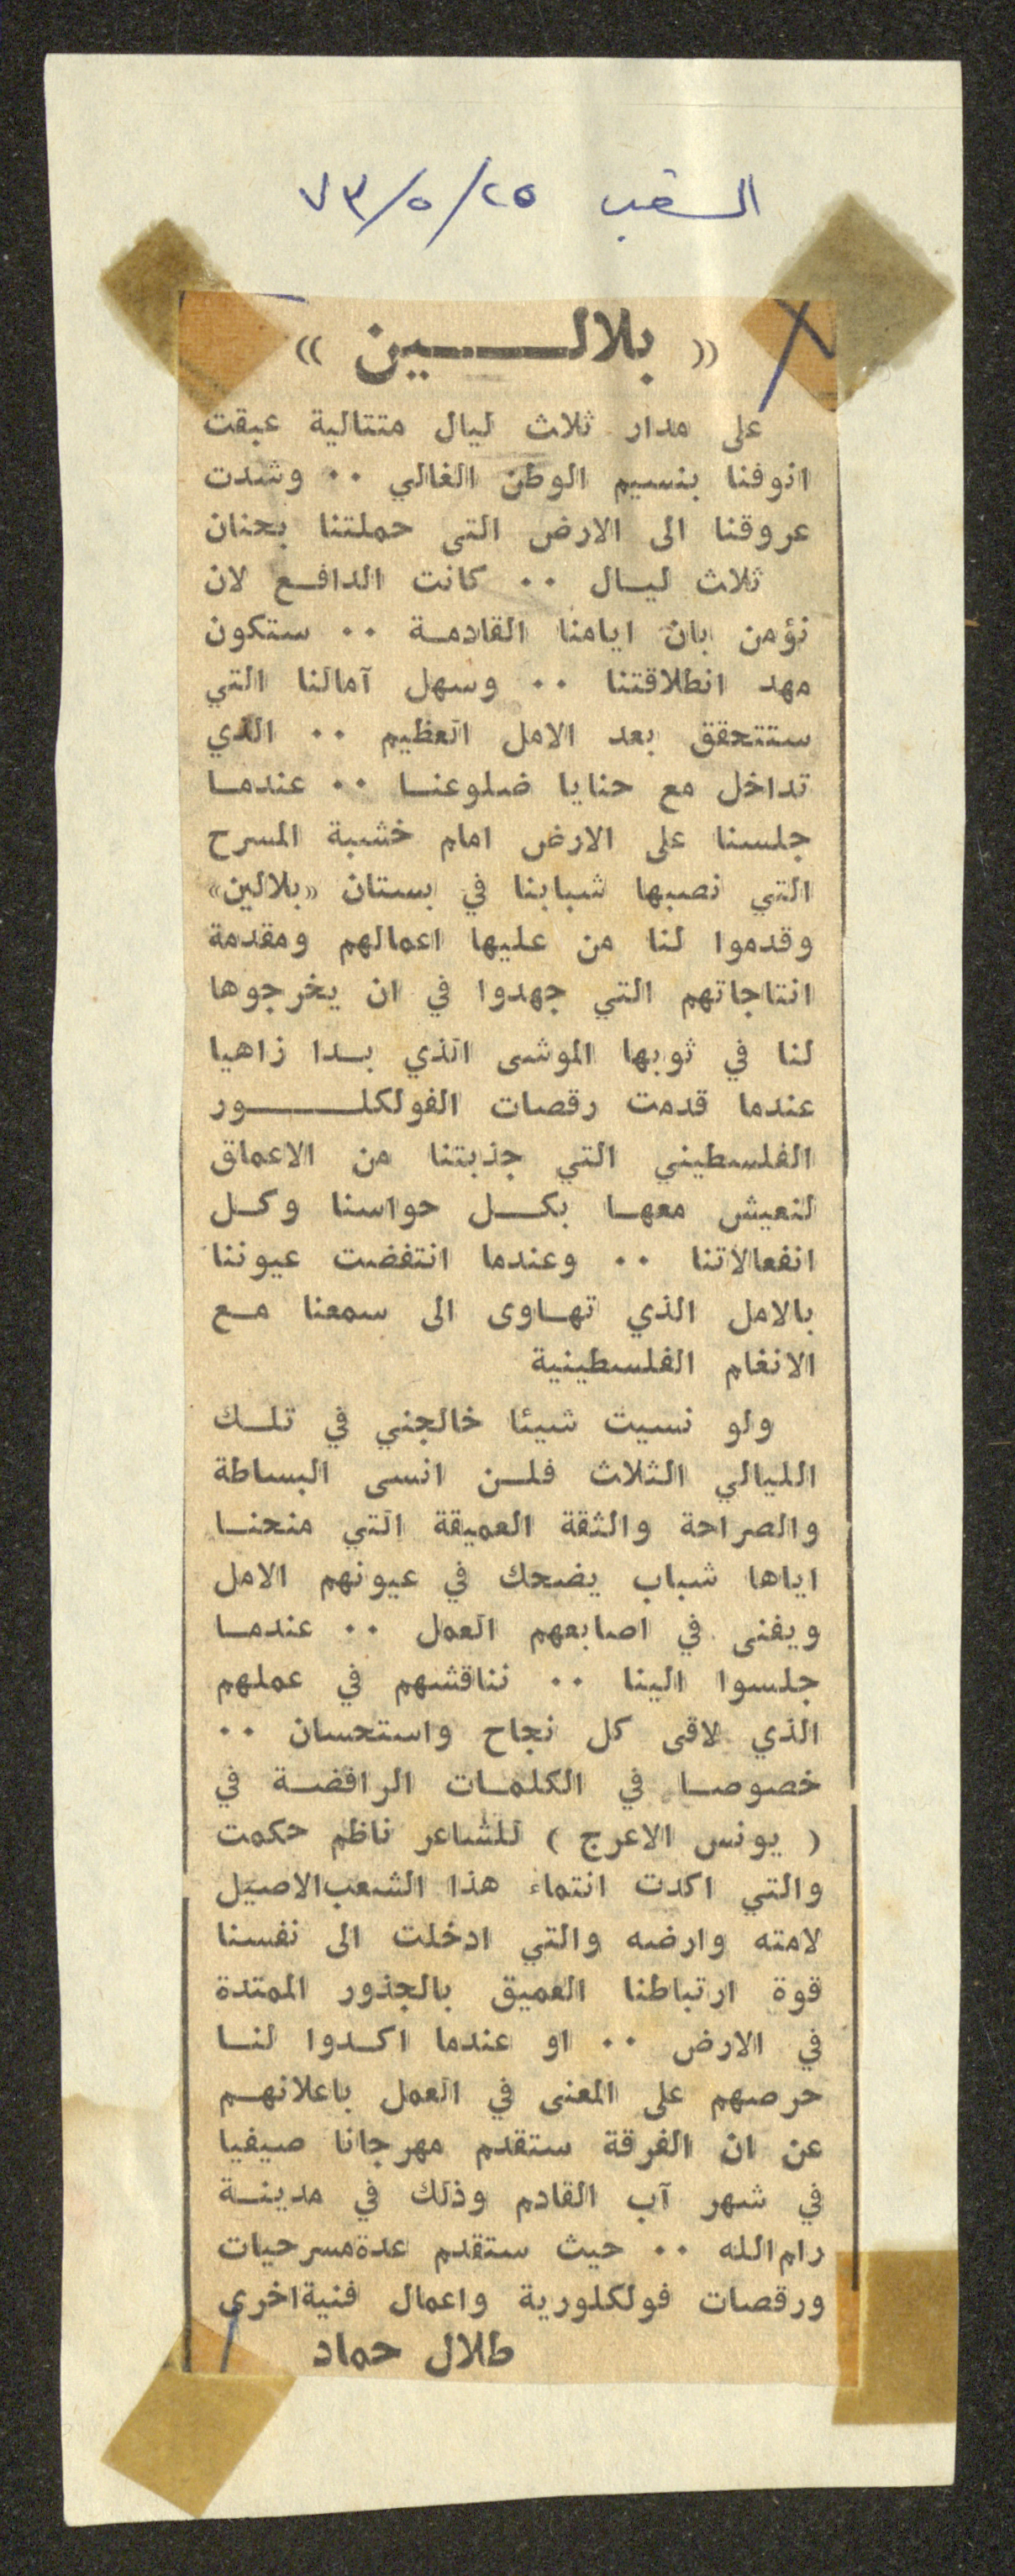 الشعب ٢٥/٥/٧٣
«بلالـــــين»
على مدار ثلاث ليال متتالية عبقت
انوفنا بنسيم الوطن الغالي ٠٠ وشدت
عروقنا الى الارض التى حملتنا بحنان
ثلاث ليـال ٠٠ كانت الدافـع لان
نؤمن بان ايامنا القادمـة ٠٠ ستكون
مهد انطلاقتنا ٠٠ وسهل آمالنا التي
ستتحقق بعد الامل العظيم ٠٠ الذي
تداخل مع حنايا ضلوعنـا ٠٠ عندمـا
جلسنا على الارض امام خشبة المسرح
التي نصبها شبابنا في بستان «بلالين»
وقدموا لنا من عليها اعمالهم ومقدمة
انتاجاتهم التي جهدوا في ان يخرجوها
لنا في ثوبها الموشى الذي بـدا زاهيا
عندما قدمت رقصات الفولكلـــــور
الفلسطيني التي جذبتنا من الاعماق
لنعيش معهـا بكـــل حواسنا وكـل
انفعالاتنا ٠٠ وعندما انتفضت عيوننا
بالامل الذي تهـاوى الى سمعنا مـع
الانغام الفلسطينية
ولو نسيت شيئا خالجني في تلـك
الليالي الثلاث فلـن انسى البساطة
والصراحة والثقة العميقة التي منحنـا
اياها شباب يضحك في عيونهم الامل
ويغنى في اصابعهم العمل ٠٠ عندمـا
جلسوا الينا ٠٠ نناقشهم في عملهم
الذي لاقى كل نجاح واستحسان ٠٠
خصوصـا في الكلمـات الرافضـة في
( يونس الاعرج ) للشاعر ناظم حكمت
والتي اكدت انتماء هذا الشعب الاصيل
لامته وارضه والتي ادخلت الى نفسنا
قوة ارتباطنا العميق بالجذور الممتدة
في الارض ٠٠ او عندما اكـدوا لنـا
حرصهم على المعنى في العمل باعلانهـم
عن ان الفرقة ستقدم مهرجانا صيفيا
في شهر آب القادم وذلك في مدينـة
رام الله ٠٠ حيث ستقدم عدة مسرحيات
ورقصات فولكلورية واعمال فنية اخرى
طلال حماد